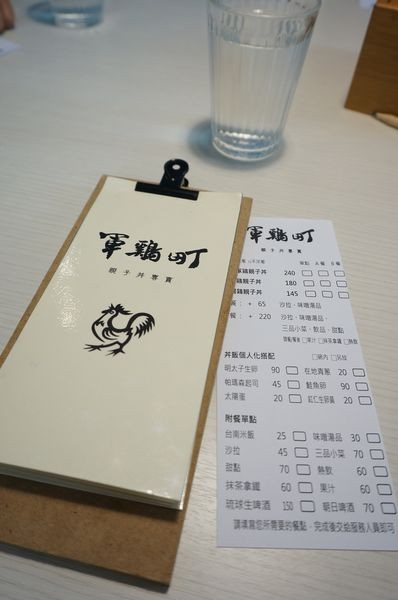 軍鷄町
親子丼專賣
軍鷄町
親子丼專賣
單點 A餐 B餐
鷄親子丼 240
鷄親子丼 180
親子丼 145
餐： + 65 沙拉、味噌湯品
餐： + 220 沙拉、味噌湯品、
三品小菜、飲品、甜點
果汁 抹茶拿鐵 熱飲
丼飯個人化搭配
明太子生卵 90 在地真蔥 20
帕瑪森起司 45 鮭魚卵 90
太陽蛋 20 紅仁生卵黃 20
附餐單點
台南米飯 25 味噌湯品 30
沙拉 45 三品小菜 70
甜點 70 熱飲 60
抹茶拿鐵 60 果汁 60
琉球生啤酒 150 朝日啤酒 70
請填寫您所需要的餐點，完成後交給服務人員即可